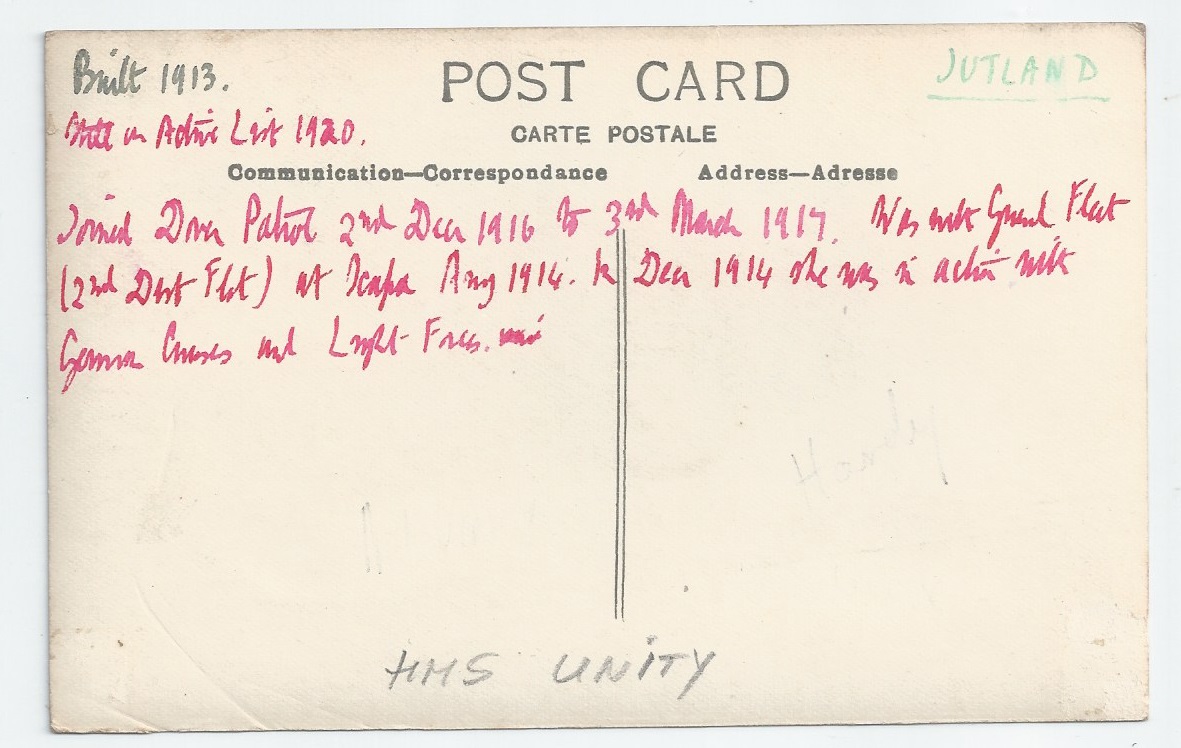 Built 1913.
JUTLAND
POST CARD
Still on Active List 1920.
CARTE POSTALE
Communication—Correspondance Address—Adresse
Joined Dover Patrol 2nd Decr 1916 to 3rd March 1917. Was with Grand Fleet
(2nd Dest Flot) at Scapa Aug 1914. In Decr 1914 she was in action with
German Cruisers and Light Forces.
HMS UNITY